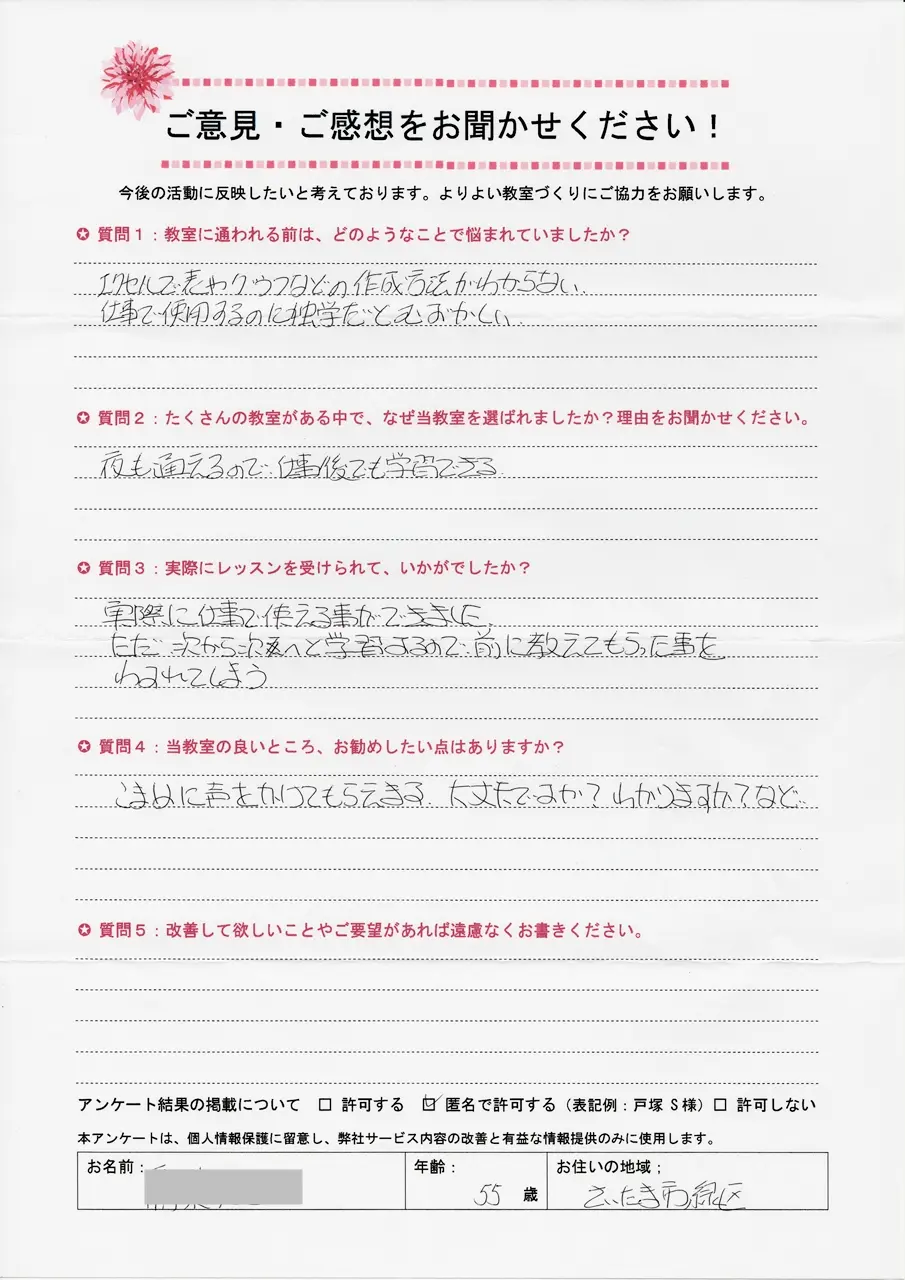 ご意見・ご感想をお聞かせください！
今後の活動に反映したいと考えております。よりよい教室づくりにご協力をお願いします。
✪ 質問１：教室に通われる前は、どのようなことで悩まれていましたか？
エクセルで表やグラフなどの作成方法がわからない。
仕事で使用するのに独学だとむずかしい。
✪ 質問２：たくさんの教室がある中で、なぜ当教室を選ばれましたか？理由をお聞かせください。
夜も通えるので、仕事後でも学習できる
✪ 質問３：実際にレッスンを受けられて、いかがでしたか？
実際に仕事で使える事ができました。
ただ 次から次へと学習するので、前に教えてもらった事を
わすれてしまう
✪ 質問４：当教室の良いところ、お勧めしたい点はありますか？
こまめに声をかけてもらえまる。大丈夫ですか？わかりますか？など。
✪ 質問５：改善して欲しいことやご要望があれば遠慮なくお書きください。
アンケート結果の掲載について □ 許可する ☑ 匿名で許可する（表記例：戸塚 S 様）□ 許可しない
本アンケートは、個人情報保護に留意し、弊社サービス内容の改善と有益な情報提供のみに使用します。
お名前： 年齢： 55 歳 お住いの地域； さいたま市緑区